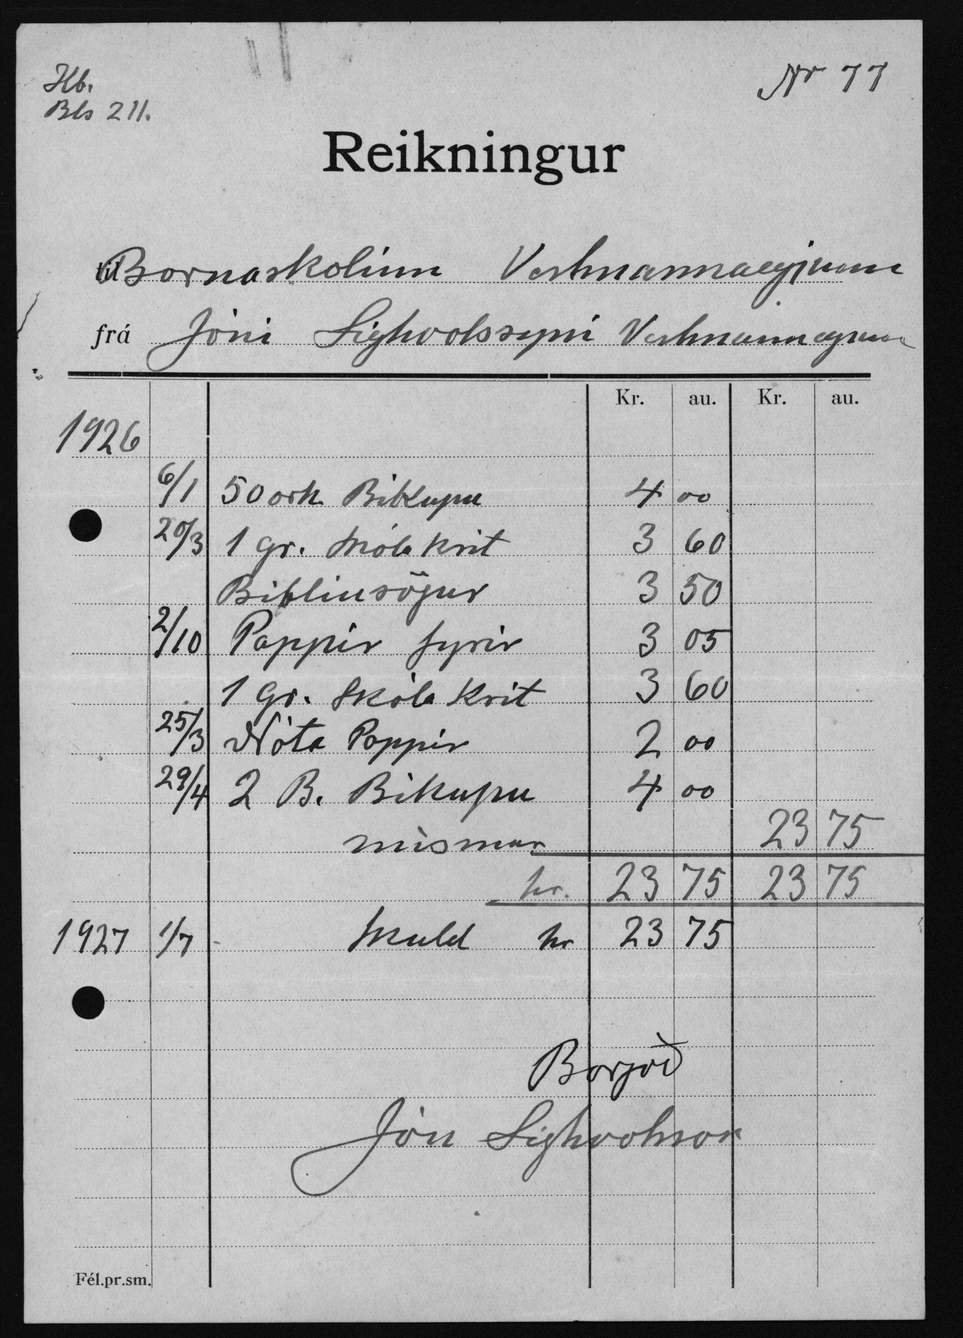 Hb.
Bls 211.
Nr 77
Reikningur
til Barnaskolinn Vestmannaeyjum
frá Jóni Sighvatssyni Vestmannaeyjum
Kr. au. Kr. au.
1926
6/1 50 ark Bikupu 4 00
20/3 1 gr. Skóla krit 3 60
Bibliusögur 3 50
2/10 Pappir fyrir 3 05
1 Gr. Skóla Krit 3 60
25/3 Nóta Pappir 2 00
29/4 2 B. Bikupu 4 00
23 75
mismun
kr. 23 75 23 75
1927 1/7 Skuld kr 23 75
Borgað
Jón Sighvatsson
Fél.pr.sm.